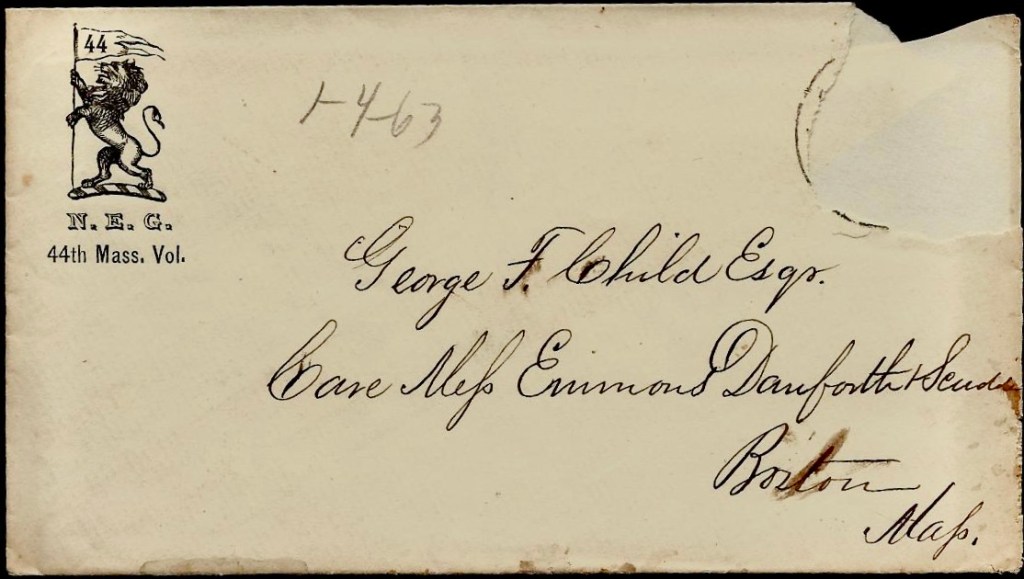 44
N. E. G.
44th Mass. Vol.
1-4-63
George F. Child Esqr.
Care Mess Emmons Danforth & Scudd
Boston
Mass.